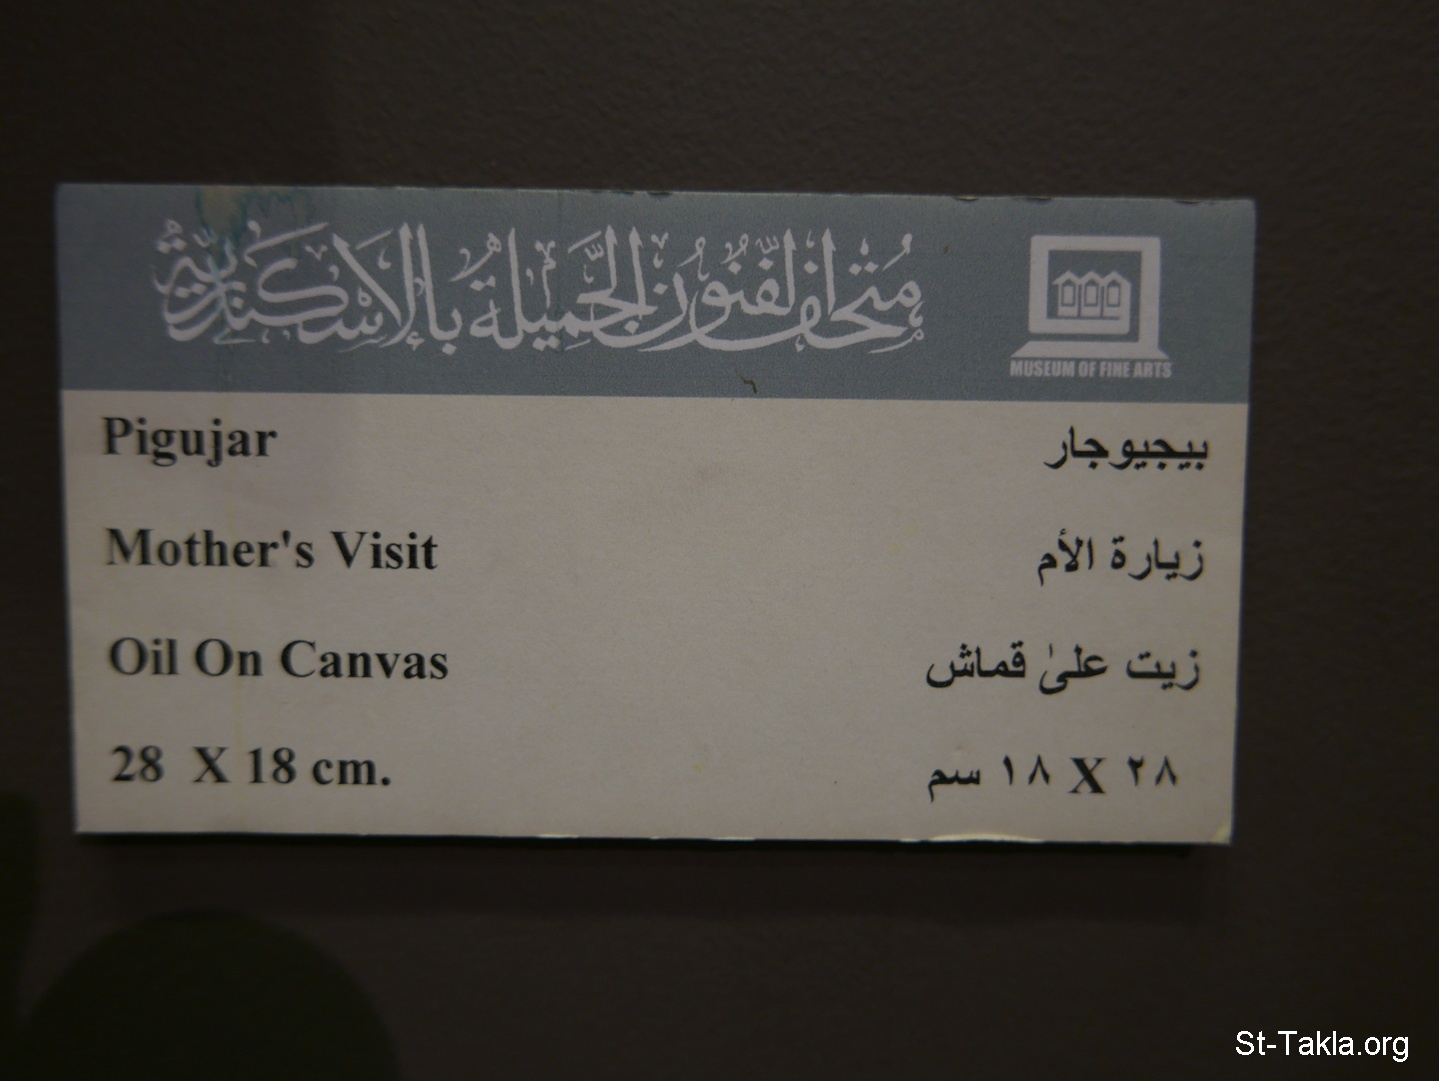 متحف الفنون الجميلة بالإسكندرية
MUSEUM OF FINE ARTS
Pigujar
بيجيوجار
Mother's Visit
زيارة الأم
Oil On Canvas
زيت على قماش
28 X 18 cm.
٢٨ X ١٨ سم
St-Takla.org